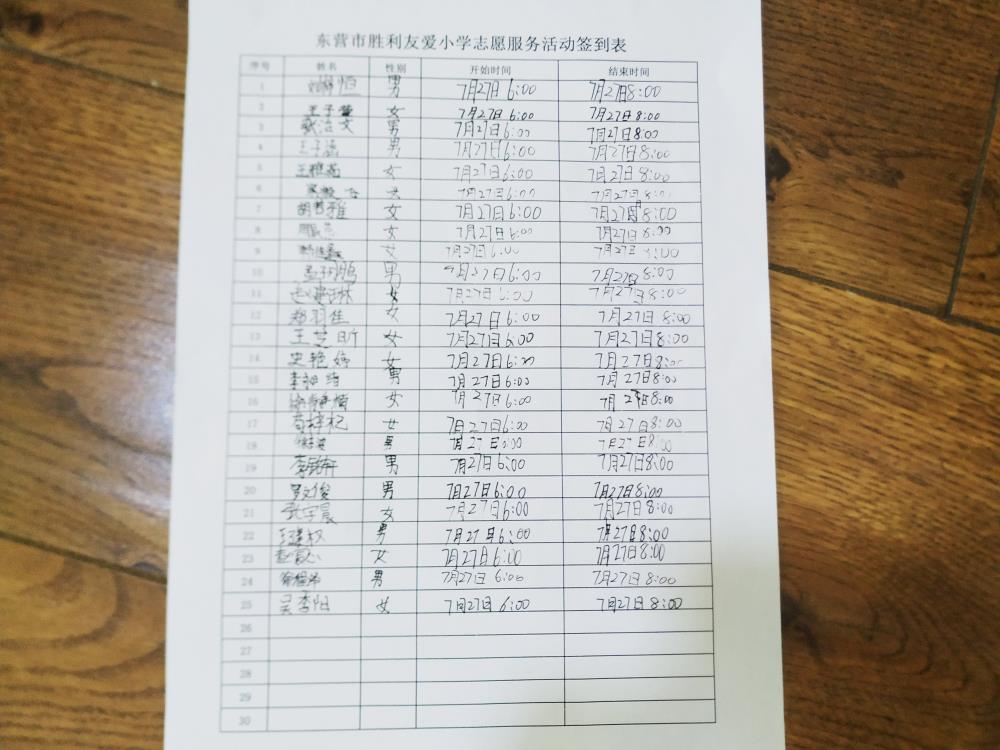 东营市胜利友爱小学志愿服务活动签到表
序号 姓名 性别 开始时间 结束时间
1 恒 男 7月27日 6:00 7月27日8:00
2 王子萱 女 7月27日 6:00 7月27日 8:00
3 文 男 7月27日6:00 7月27日 8:00
4 王子涵 男 7月27日6:00 7月27日8:00
5 王雅 女 7月27日6:00 7月27日8:00
6 女 7月27日6:00 7月27日8:00
7 胡 雅 女 7月27日6:00 7月27日8:00
8 女 7月27日 6:00 7月27日 8:00
9 女 7月27日6:00 7月27日 8:00
10 孟 鹏 男 7月27日6:00 7月27日8:00
11 赵 琳 女 7月27日 6:00 7月27日8:00
12 郑羽佳 女 7月27日 6:00 7月27日 8:00
13 王芝昕 女 7月27日6:00 7月27日8:00
14 史艳婷 女 7月27日6:00 7月27日8:00
15 李 男 7月27日6:00 7月27日8:00
16 徐 女 7月27日6:00 7月27日8:00
17 苟梓杞 女 7月27日6:00 7月27日8:00
18 男 7月27日6:00 7月27日8:00
19 李 轩 男 7月27日6:00 7月27日8:00
20 俊 男 7月27日6:00 7月27日8:00
21 张宇晨 女 7月27日6:00 7月27日8:00
22 王 权 男 7月27日6:00 7月27日8:00
23 赵 心 女 7月27日6:00 7月27日8:00
24 男 7月27日 6:00 7月27日 8:00
25 吴季阳 女 7月27日 6:00 7月27日 8:00
26
27
28
29
30